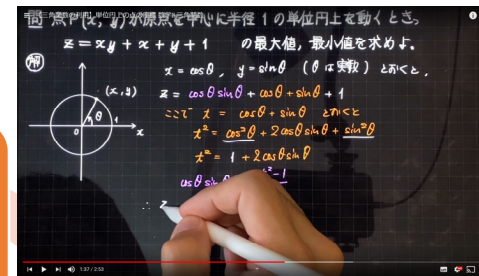 問 点P(x,y)が原点を中心に半径1の単位円上を動くとき。
z = xy + x + y + 1 の最大値，最小値を求めよ。
解
x = cosθ, y = sinθ (θは実数) とおくと，
(x,y)
z = cosθsinθ + cosθ + sinθ + 1
θ
0
1
x
ここで t = cosθ + sinθ とおくと
t² = cos²θ + 2cosθsinθ + sin²θ
t² = 1 + 2cosθsinθ
∴ z
1:37 / 2:53